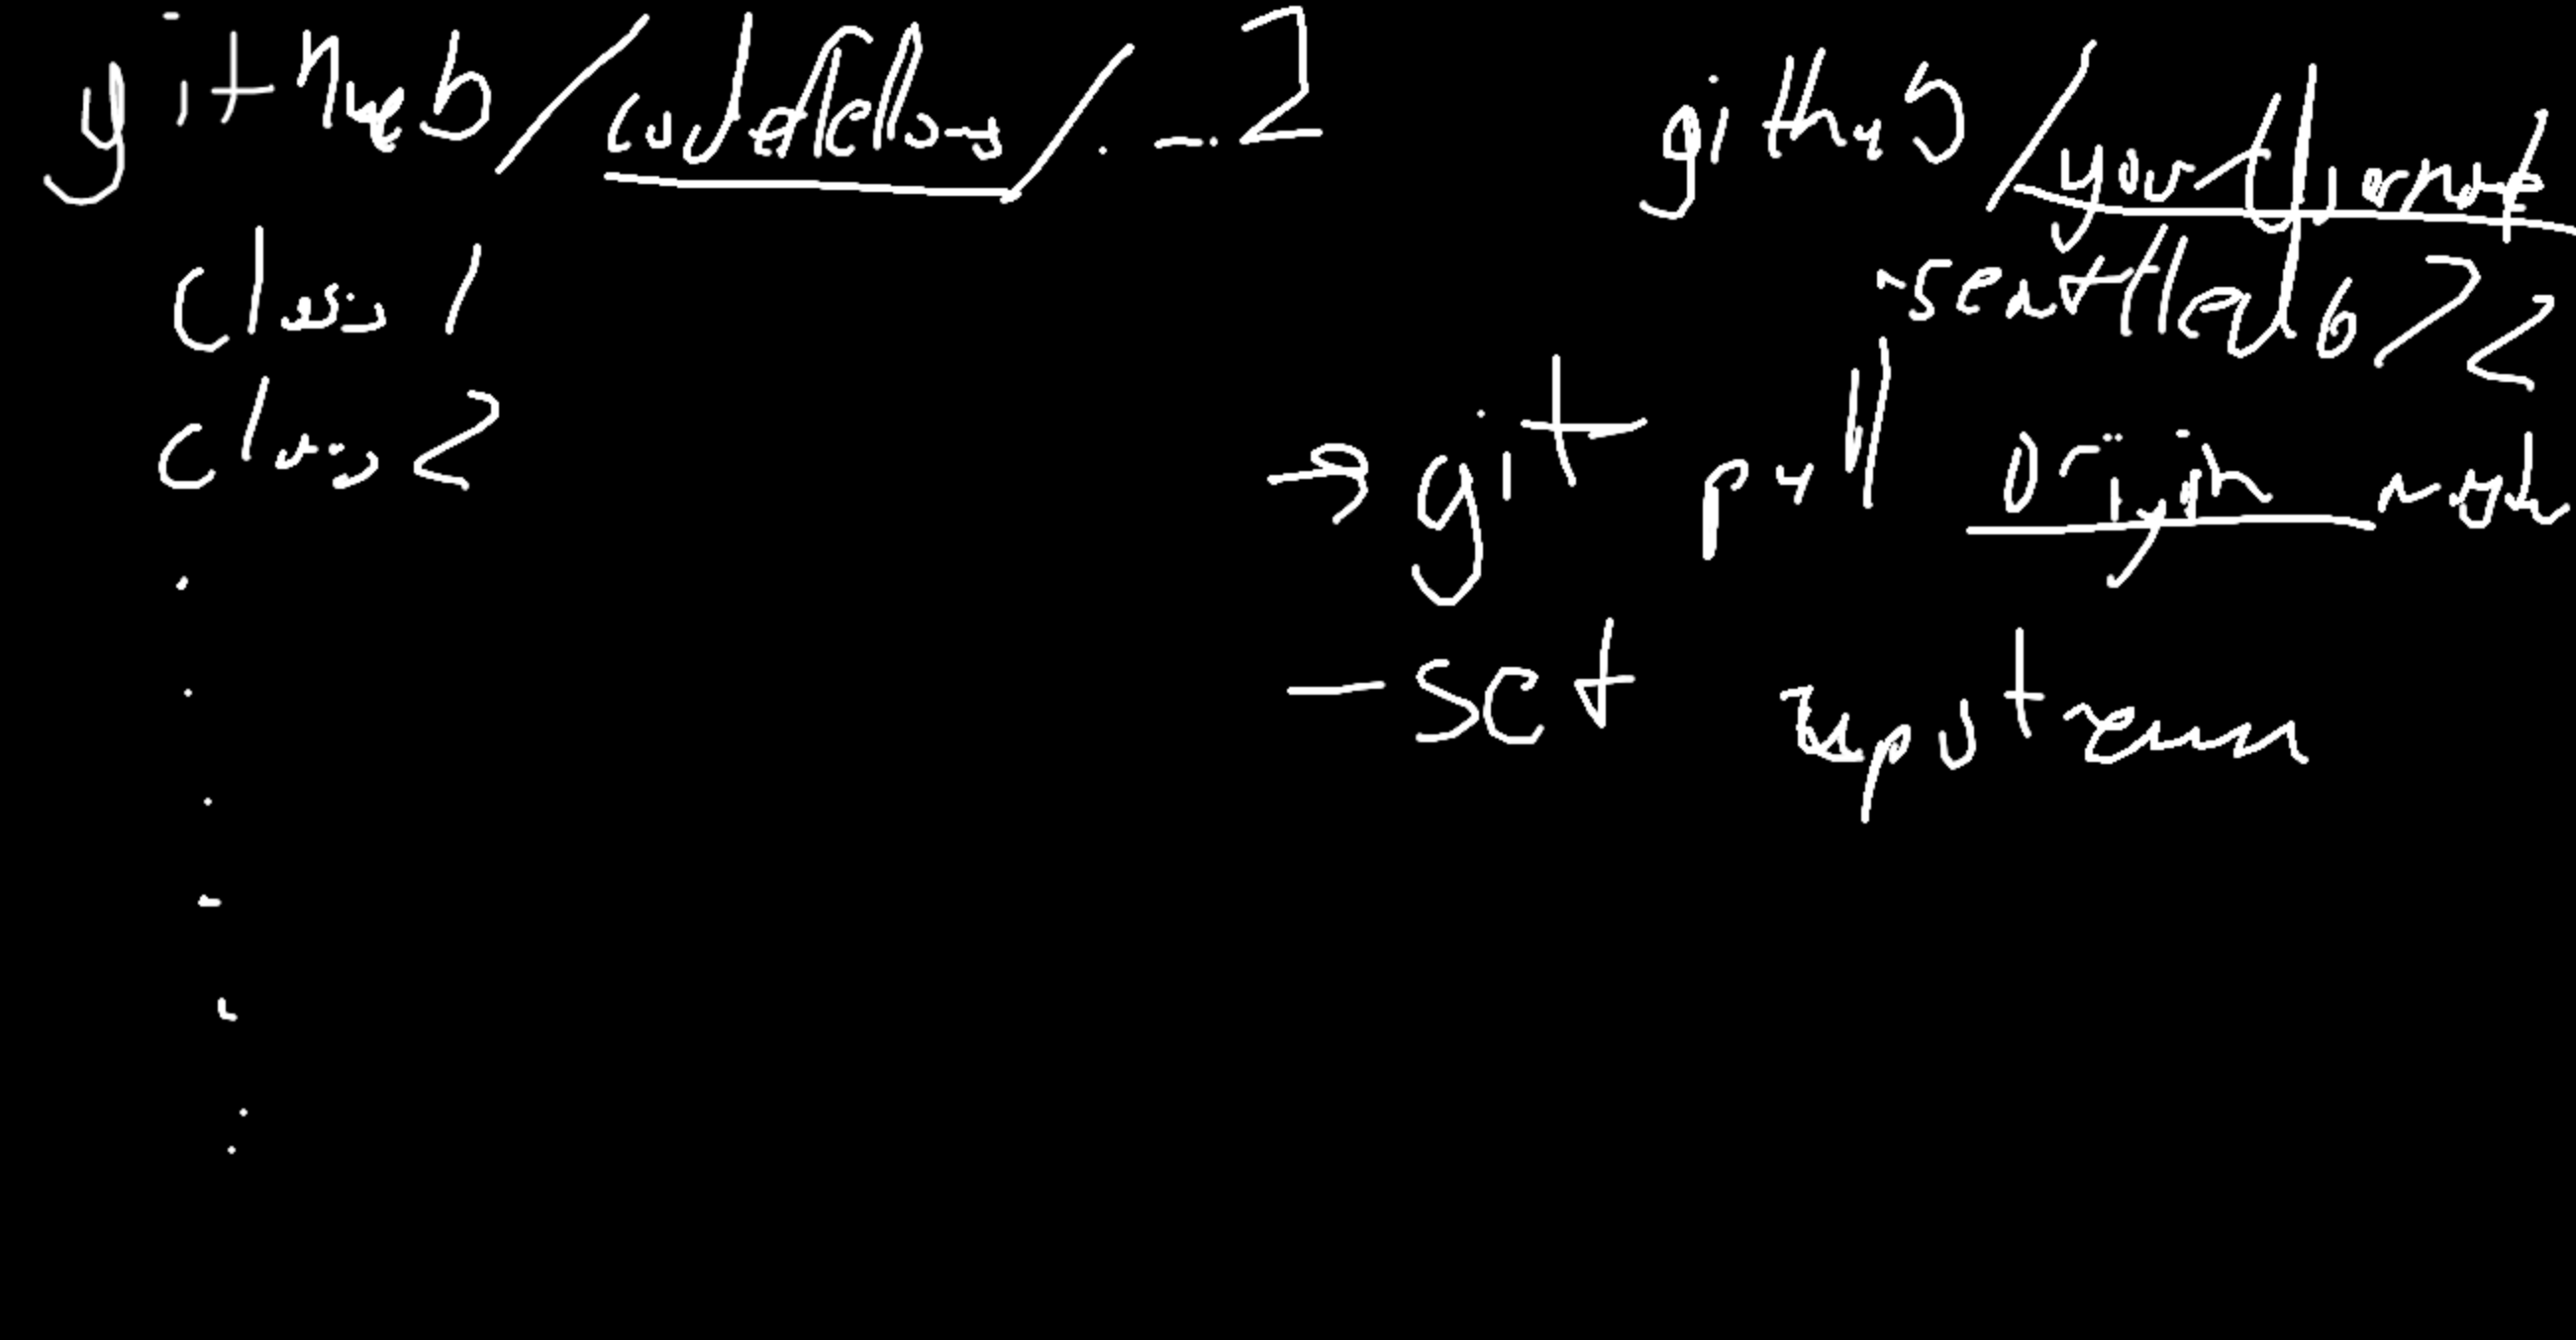 github/codefellows/...2
class 1
class 2
github/your
-seattle
→ git pull origin
- set upstream